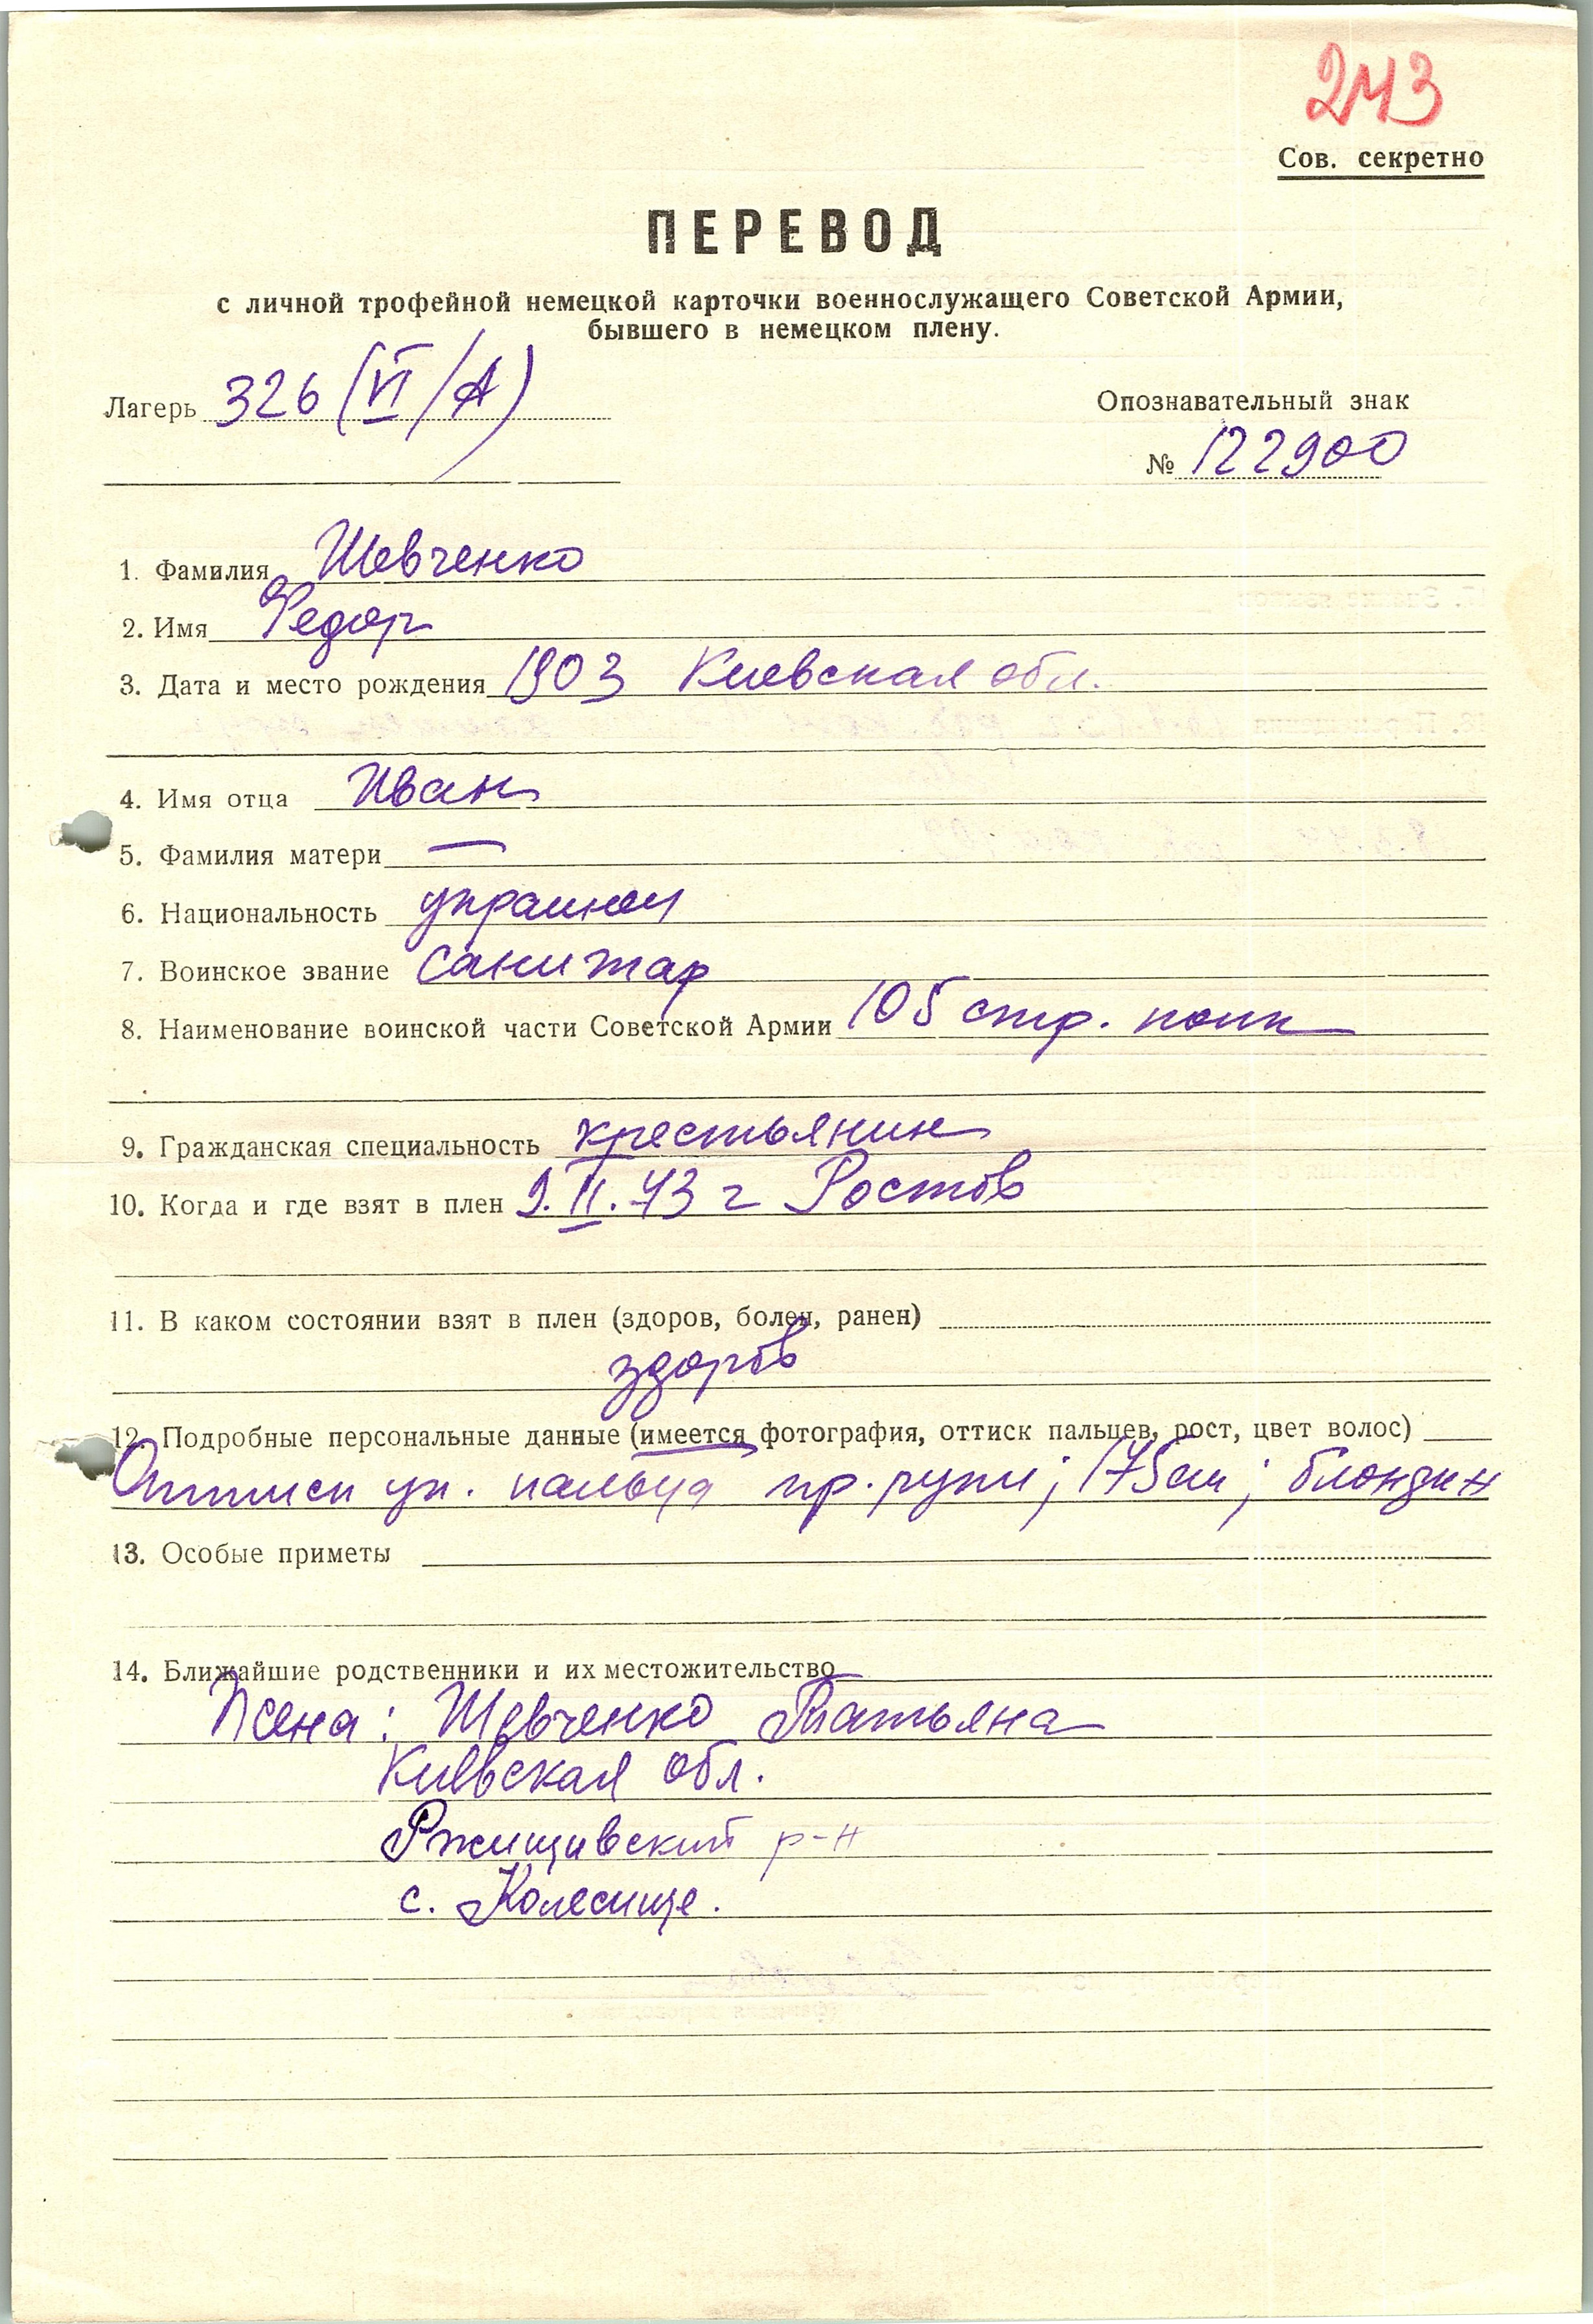 243
Сов. секретно
ПЕРЕВОД
с личной трофейной немецкой карточки военнослужащего Советской Армии,
бывшего в немецком плену.
Лагерь 326 (VI/А)
Опознавательный знак
№ 122900
1. Фамилия Шевченко
2. Имя Федор
3. Дата и место рождения 1903 Киевская обл.
4. Имя отца Иван
5. Фамилия матери —
6. Национальность украинец
7. Воинское звание санитар
8. Наименование воинской части Советской Армии 105 стр. полк
9. Гражданская специальность крестьянин
10. Когда и где взят в плен 9.II.43 г Ростов
11. В каком состоянии взят в плен (здоров, болен, ранен)
здоров
12. Подробные персональные данные (имеется фотография, оттиск пальцев, рост, цвет волос)
Оттиск ук. пальца пр. руки; 175 см; блондин
13. Особые приметы
14. Ближайшие родственники и их местожительство
Жена: Шевченко Татьяна
Киевская обл.
Ржищивский р-н
с. Колесище.